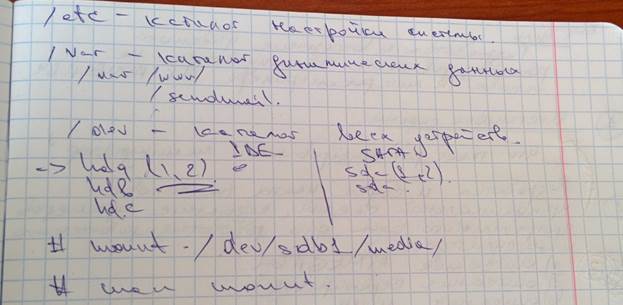 /etc – каталог настройки системы.
/var – каталог динамических данных
/var /www/
/sendmail.
/dev – каталог всех устройств.
IDE SATA
-> hda (1,2) sda (1,2).
hdb sda.
hdc
# mount -/dev/sdb1/media/
# man mount.